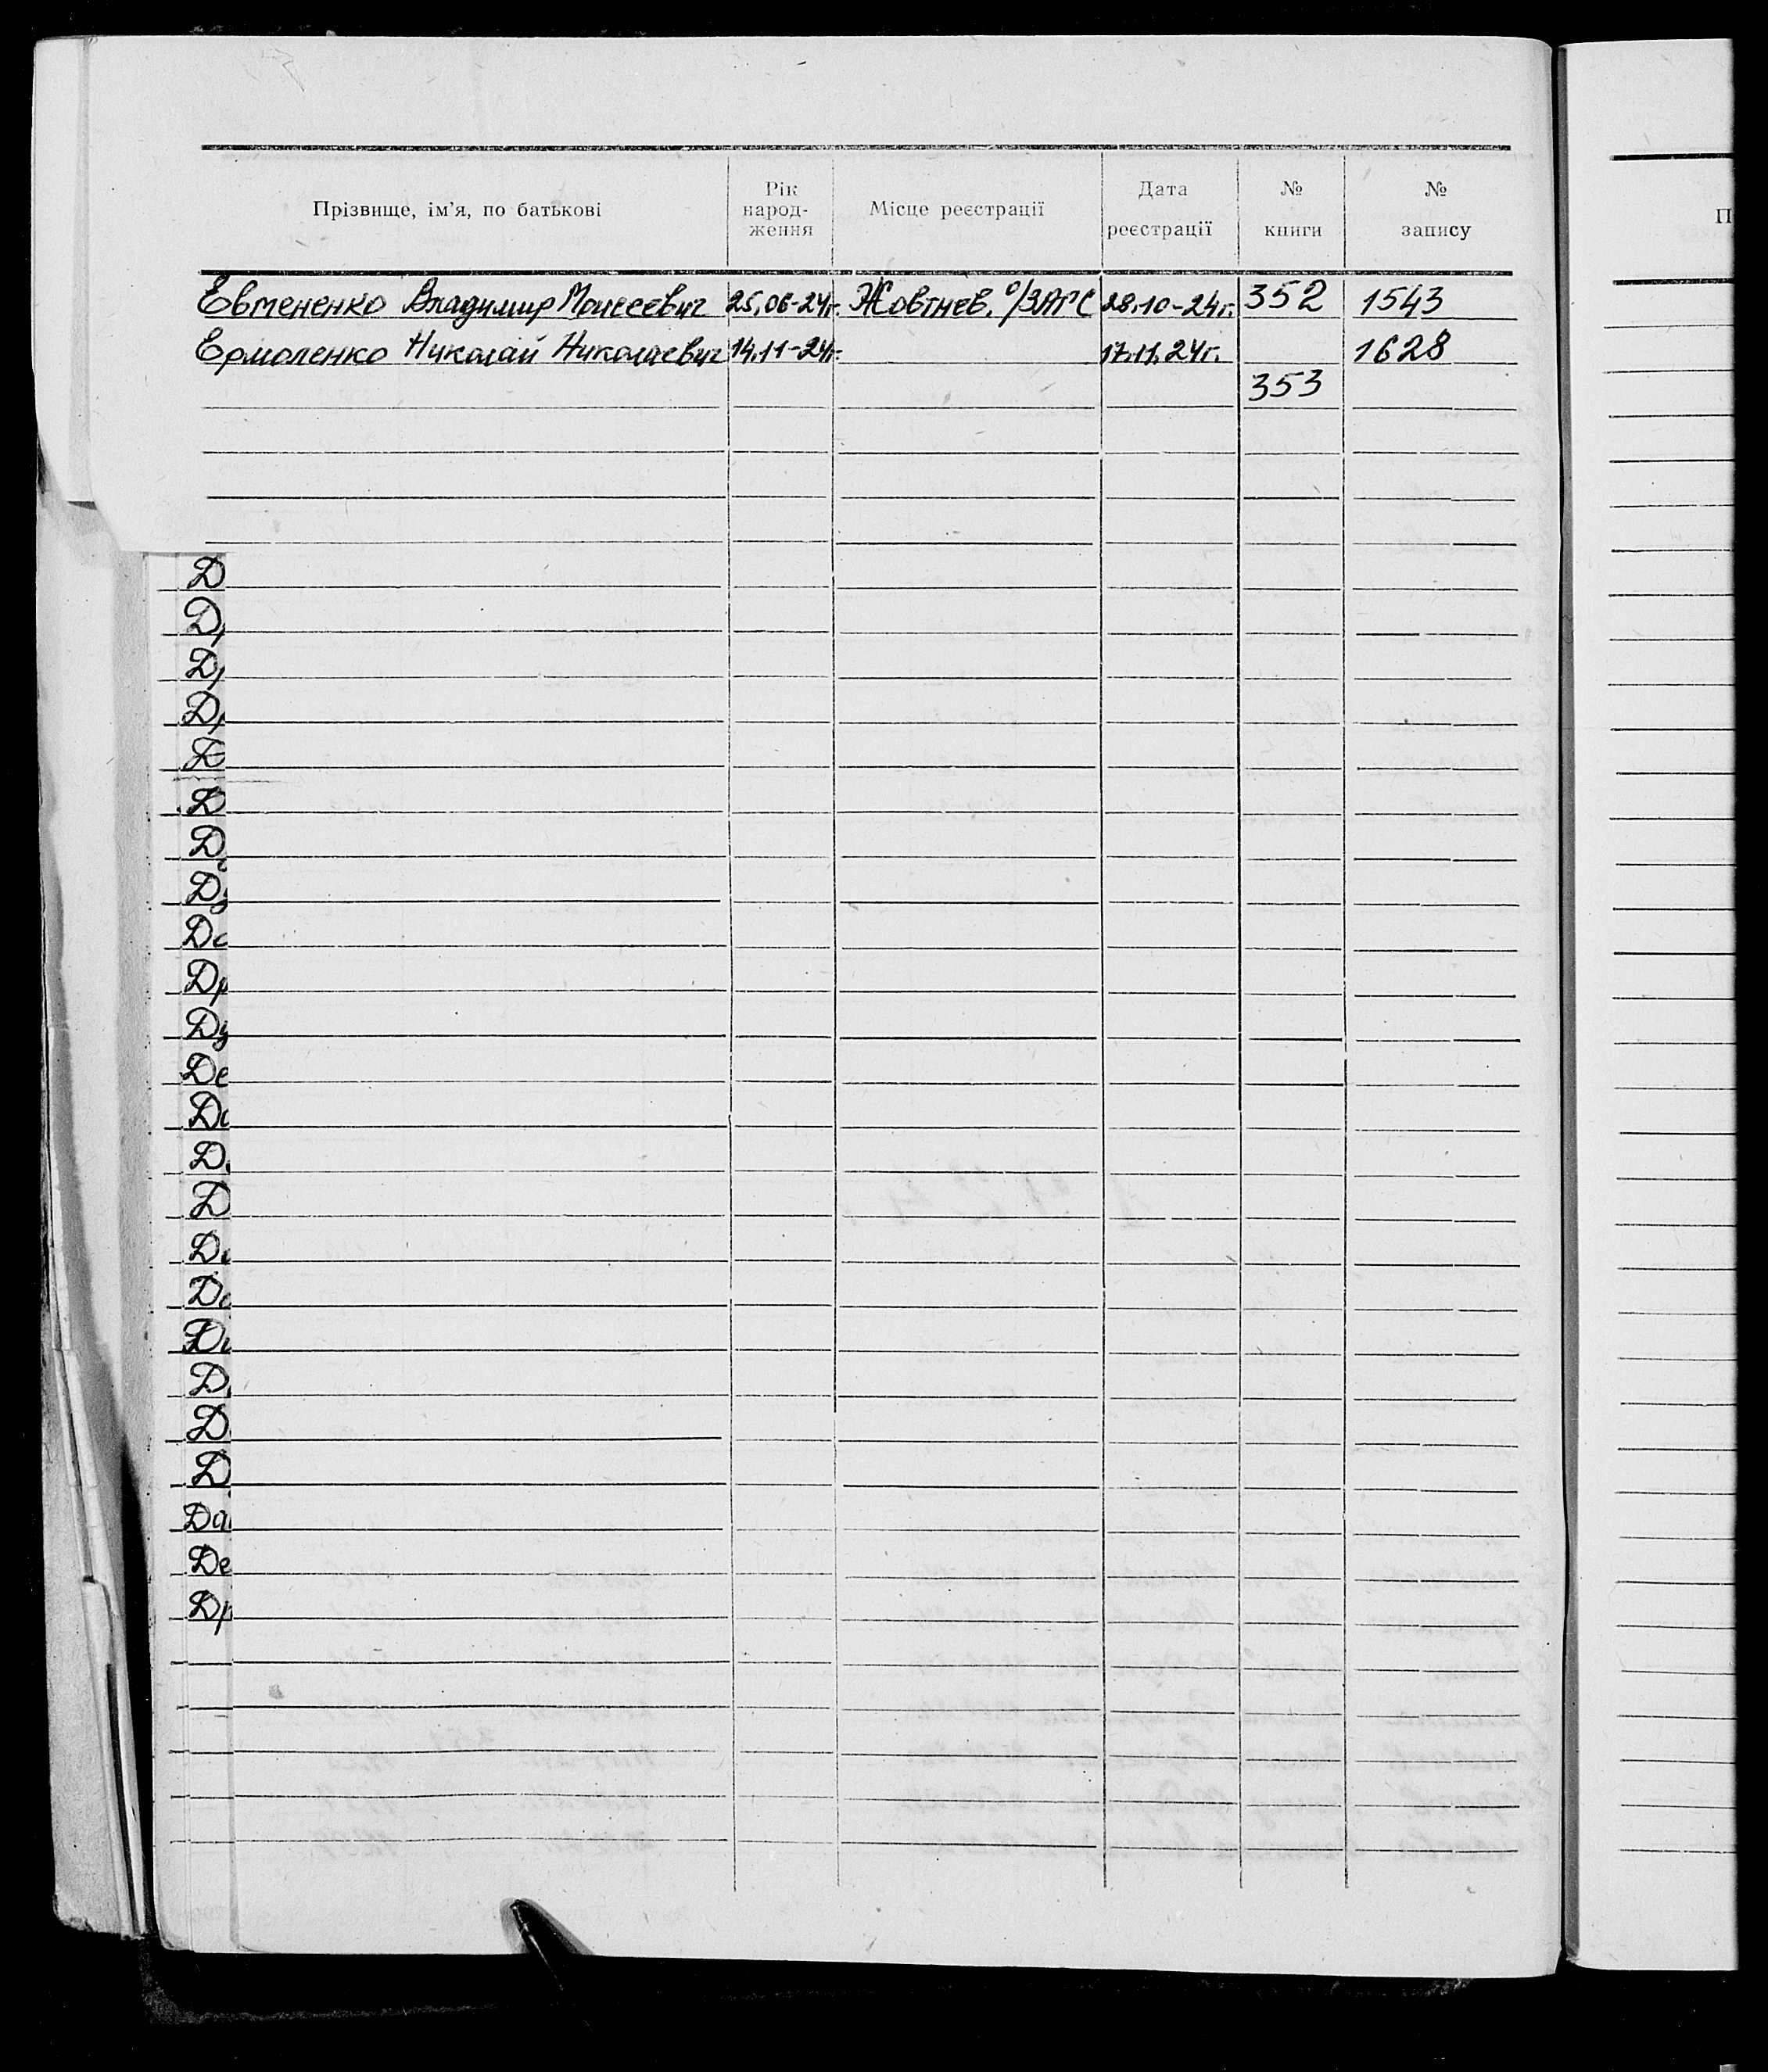 Прізвище, ім'я, по батькові Рік народ-ження Місце реєстрації Дата реєстрації № книги № запису
Евтененко Владимир Моисеевич 25.06-24г. Жовтнев. о/ЗАГС 28.10-24г. 352 1543
Ермоленко Николай Николаевич 14.11-24г. 17.11.24г. 1628
353
Д
Д
Д
Д
Д
Д
Д
Ду
До
Др
Ду
Де
До
Д
Д
Д
До
Д
Д
Д
Д
Да
Де
Др
П